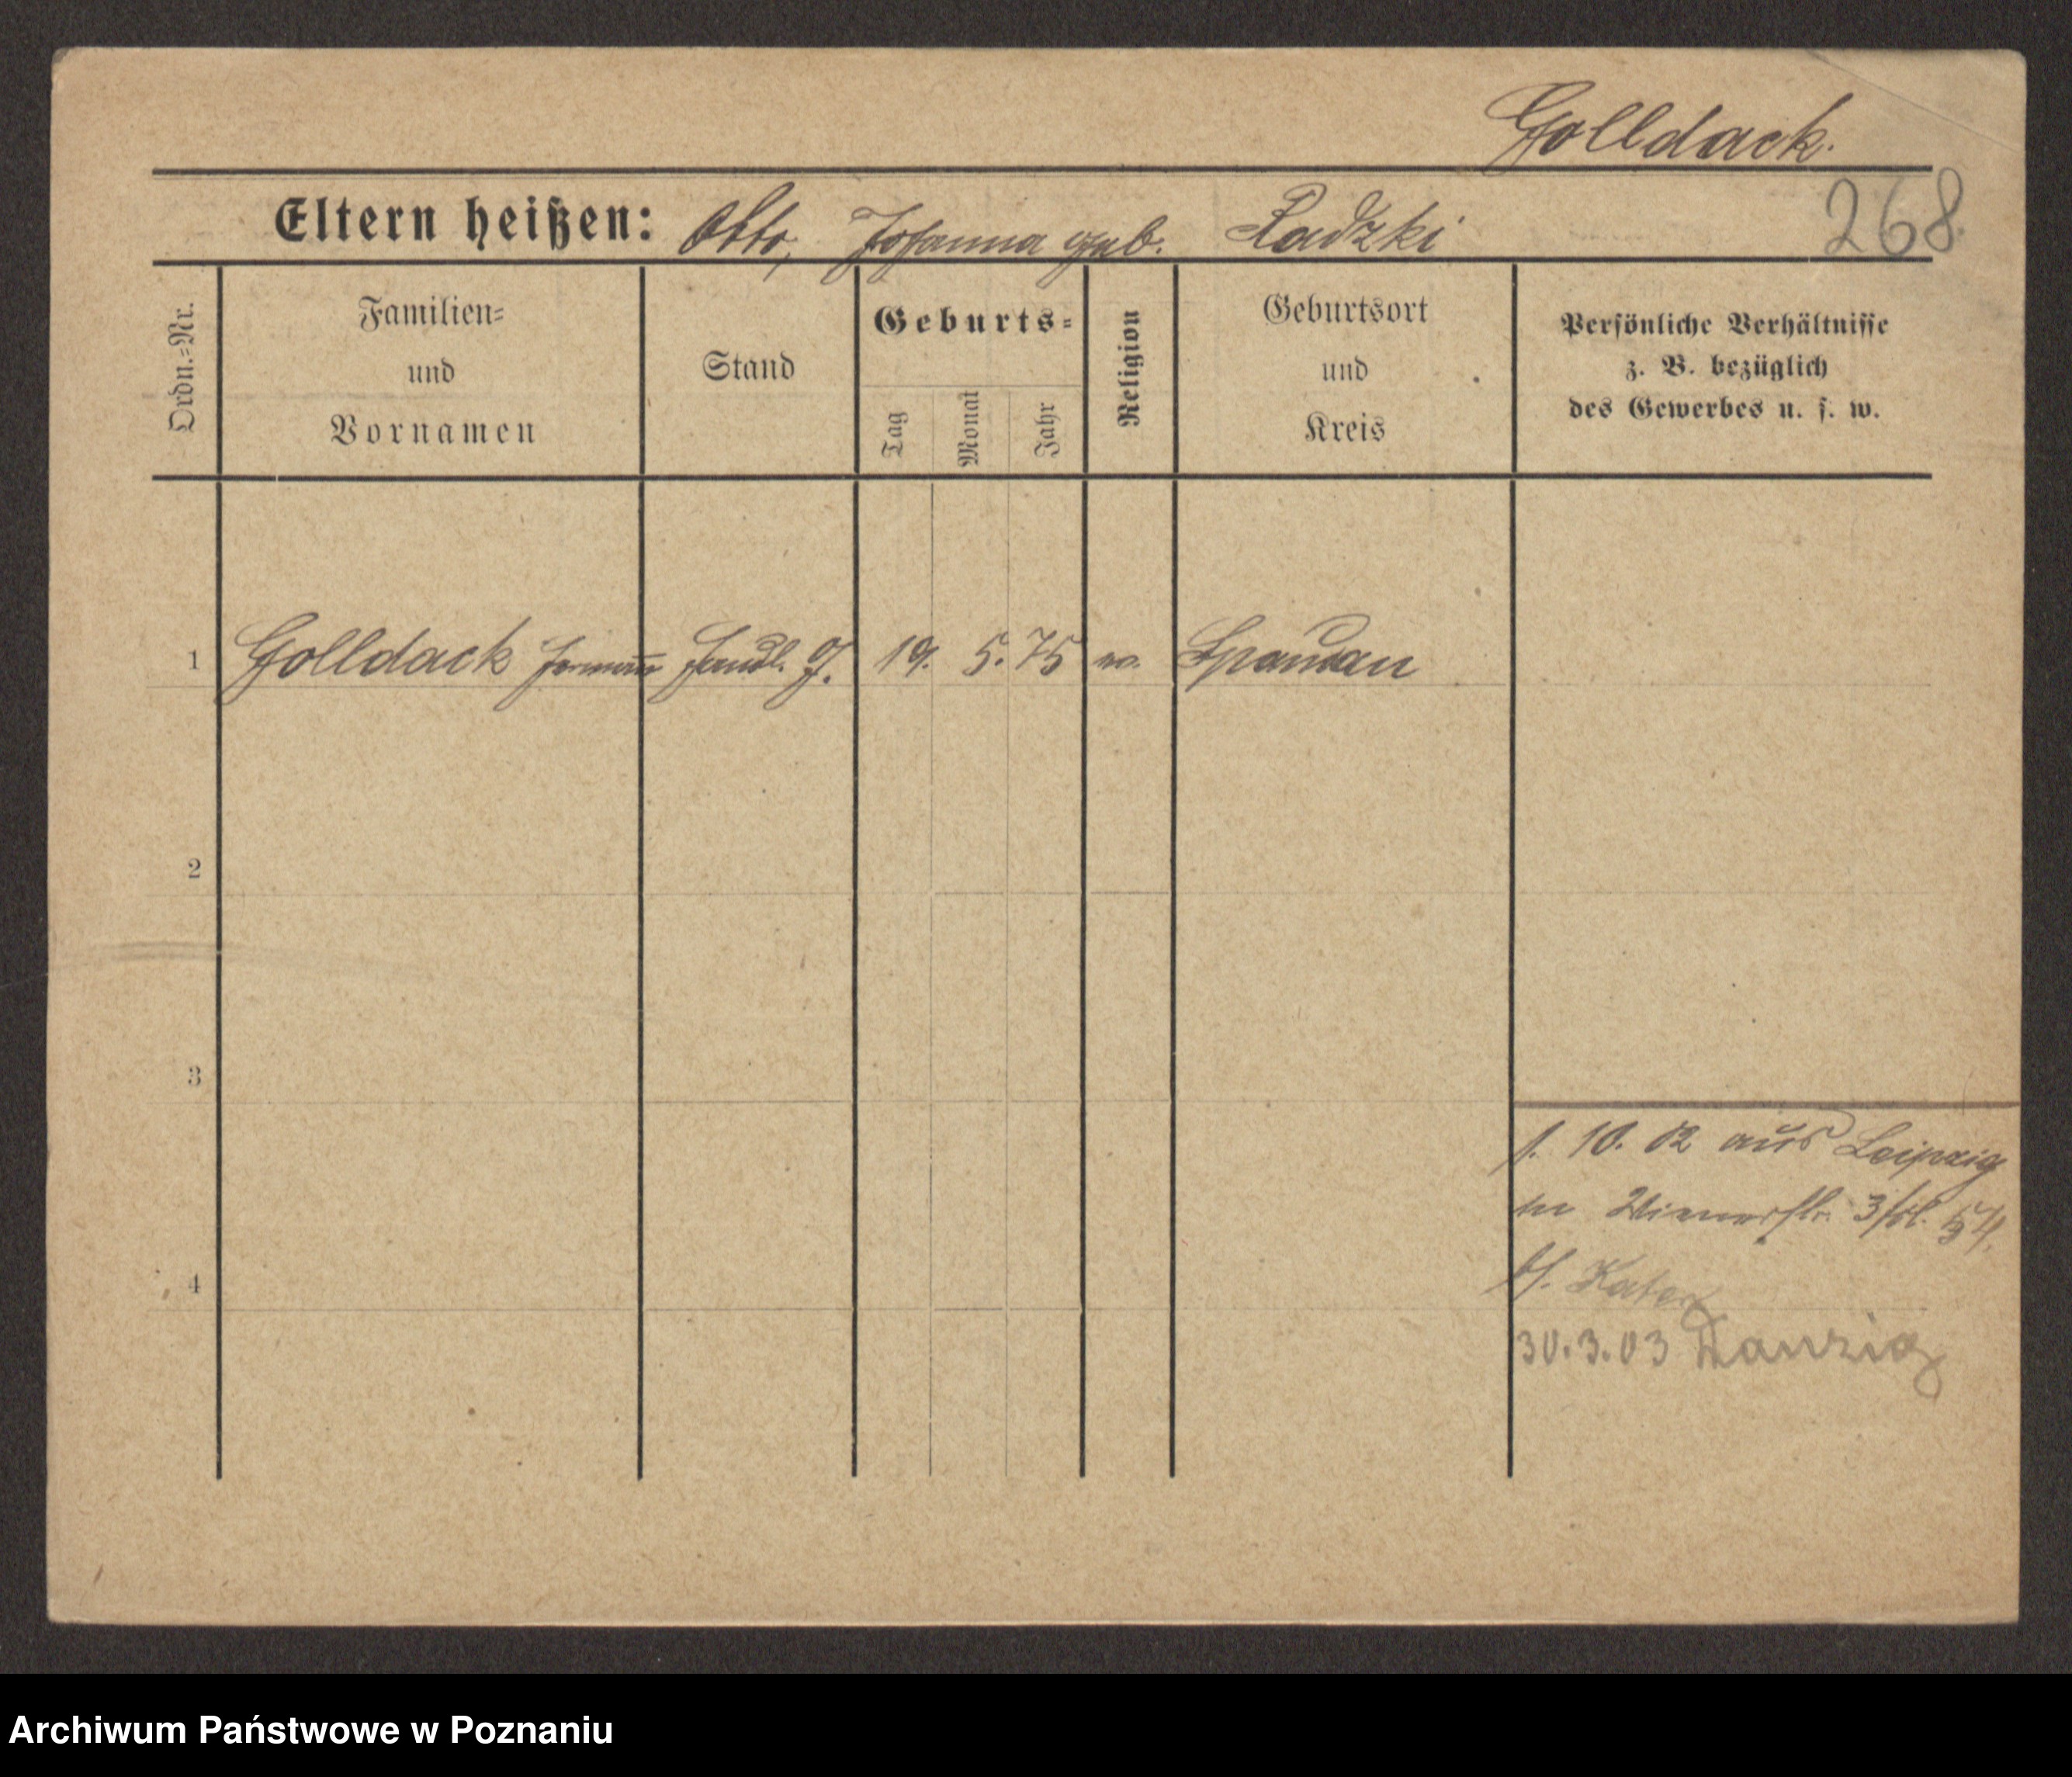 Golldack.
268.
Eltern heißen: Otto, Johanna geb. Radzki
Ordn.=Nr.
Familien=
und
Vornamen
Stand
Geburts=
Tag
Monat
Jahr
Religion
Geburtsort
und
Kreis
Persönliche Verhältnisse
z. B. bezüglich
des Gewerbes u. s. w.
1 Golldack Hermann Handl. G. 19. 5. 75 Spandau
2
3
4
1. 10. 02 aus Leipzig
Wienerstr. 3
Kater
30.3.03 Danzig
Archiwum Państwowe w Poznaniu